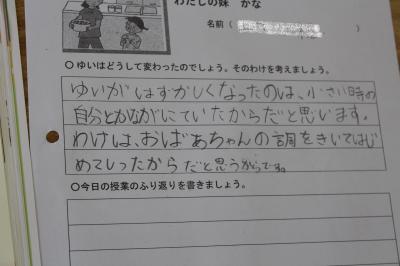 わたしの妹 かな
名前（　　　）
○ ゆいはどうして変わったのでしょう。そのわけを考えましょう。
ゆいがはずかしくなったのは、小さい時の
自分とかながにていたからだと思います。
わけは、おばあちゃんの話をきいてはじ
めてしったからだと思うからです。
○今日の授業のふり返りを書きましょう。